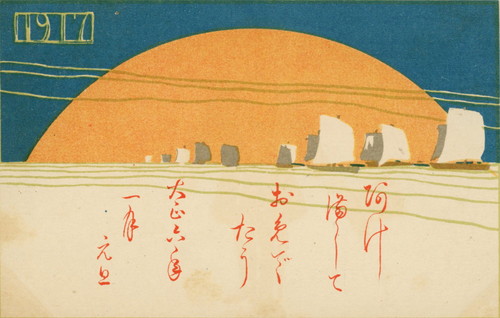 1917
阿け
満して
お免で
たう
大正六年
一月
元旦